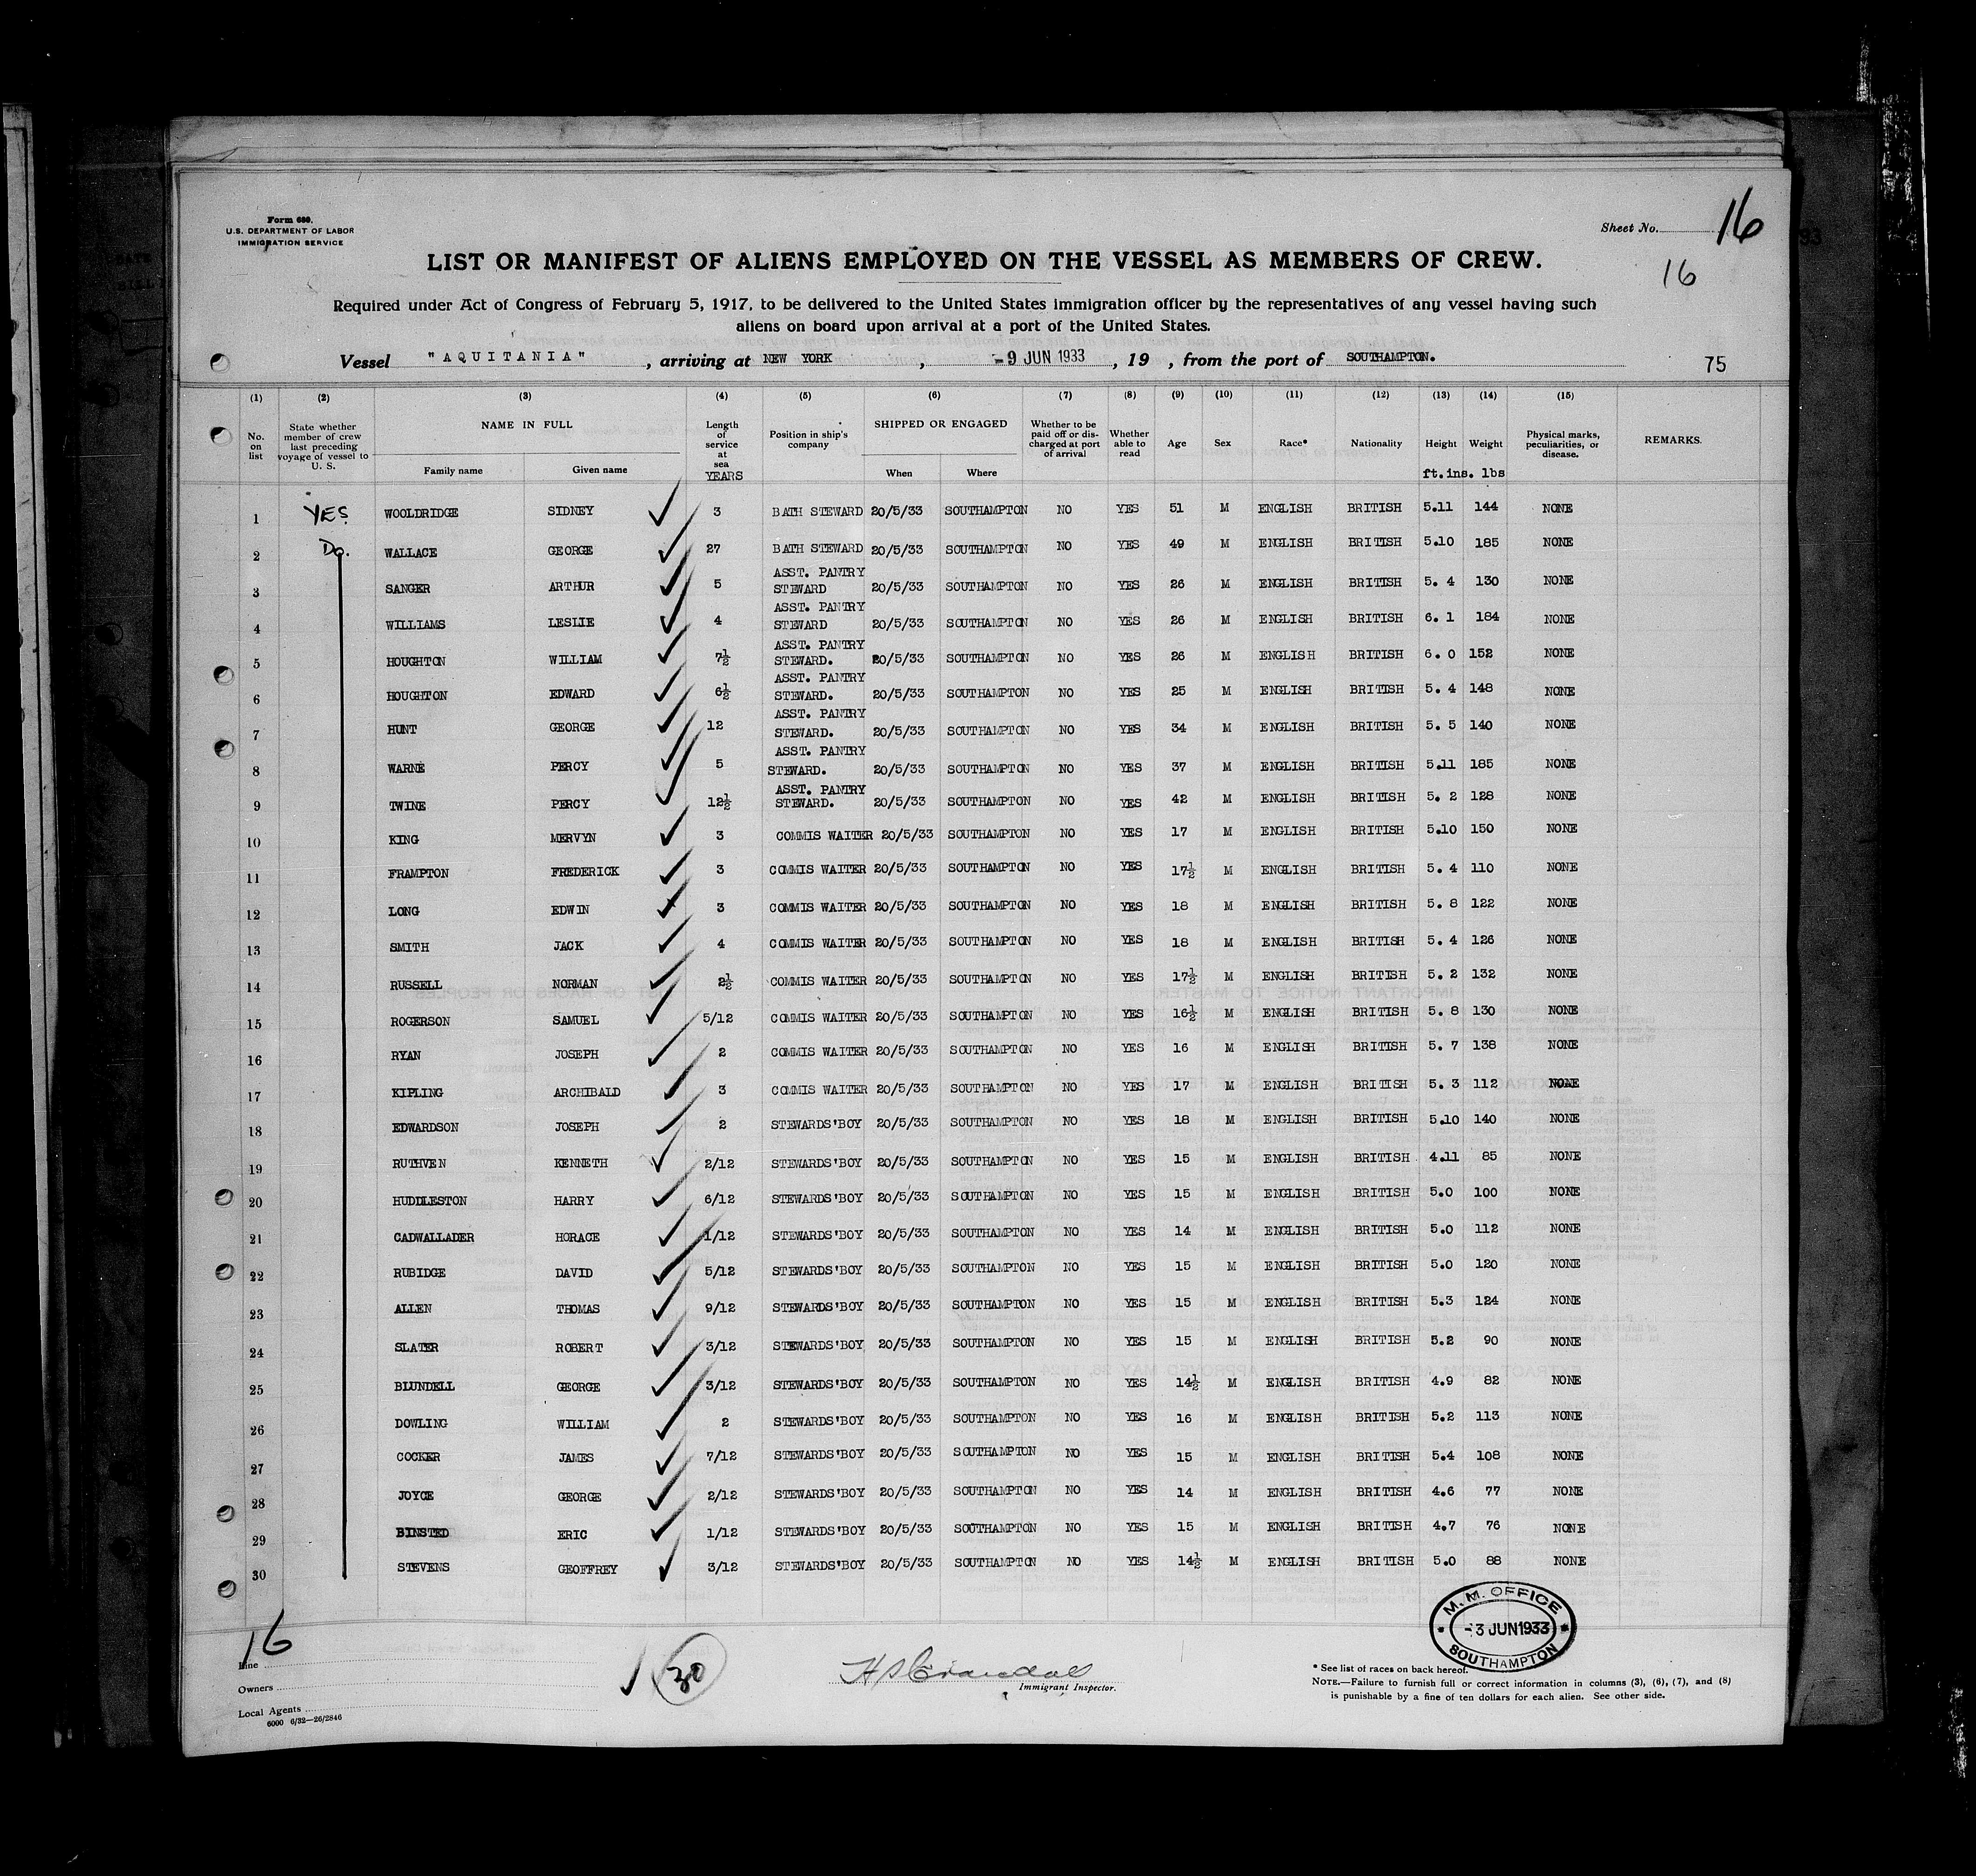 Form 680.
U.S. DEPARTMENT OF LABOR
IMMIGRATION SERVICE
Sheet No. 16
16
LIST OR MANIFEST OF ALIENS EMPLOYED ON THE VESSEL AS MEMBERS OF CREW.
Required under Act of Congress of February 5, 1917, to be delivered to the United States immigration officer by the representatives of any vessel having such
aliens on board upon arrival at a port of the United States.
Vessel "AQUITANIA", arriving at NEW YORK, -9 JUN 1933, 19 , from the port of SOUTHAMPTON.
75
(1) (2) (3) (4) (5) (6) (7) (8) (9) (10) (11) (12) (13) (14) (15)
No. on list State whether member of crew last preceding voyage of vessel to U. S. NAME IN FULL Length of service at sea YEARS Position in ship's company SHIPPED OR ENGAGED Whether to be paid off or discharged at port of arrival Whether able to read Age Sex Race* Nationality Height Weight Physical marks, peculiarities, or disease. REMARKS.
Family name Given name When Where ft.ins. lbs
1 YES WOOLDRIDGE SIDNEY 3 BATH STEWARD 20/5/33 SOUTHAMPTON NO YES 51 M ENGLISH BRITISH 5.11 144 NONE
2 Do. WALLACE GEORGE 27 BATH STEWARD 20/5/33 SOUTHAMPTON NO YES 49 M ENGLISH BRITISH 5.10 185 NONE
3 SANGER ARTHUR 5 ASST. PANTRY STEWARD 20/5/33 SOUTHAMPTON NO YES 26 M ENGLISH BRITISH 5. 4 130 NONE
4 WILLIAMS LESLIE 4 ASST. PANTRY STEWARD 20/5/33 SOUTHAMPTON NO YES 26 M ENGLISH BRITISH 6. 1 184 NONE
5 HOUGHTON WILLIAM 7½ ASST. PANTRY STEWARD. 20/5/33 SOUTHAMPTON NO YES 26 M ENGLISH BRITISH 6. 0 152 NONE
6 HOUGHTON EDWARD 6½ ASST. PANTRY STEWARD. 20/5/33 SOUTHAMPTON NO YES 25 M ENGLISH BRITISH 5. 4 148 NONE
7 HUNT GEORGE 12 ASST. PANTRY STEWARD. 20/5/33 SOUTHAMPTON NO YES 34 M ENGLISH BRITISH 5. 5 140 NONE
8 WARNE PERCY 5 ASST. PANTRY STEWARD. 20/5/33 SOUTHAMPTON NO YES 37 M ENGLISH BRITISH 5.11 185 NONE
9 TWINE PERCY 12½ ASST. PANTRY STEWARD. 20/5/33 SOUTHAMPTON NO YES 42 M ENGLISH BRITISH 5. 2 128 NONE
10 KING MERVYN 3 COMMIS WAITER 20/5/33 SOUTHAMPTON NO YES 17 M ENGLISH BRITISH 5.10 150 NONE
11 FRAMPTON FREDERICK 3 COMMIS WAITER 20/5/33 SOUTHAMPTON NO YES 17½ M ENGLISH BRITISH 5. 4 110 NONE
12 LONG EDWIN 3 COMMIS WAITER 20/5/33 SOUTHAMPTON NO YES 18 M ENGLISH BRITISH 5. 8 122 NONE
13 SMITH JACK 4 COMMIS WAITER 20/5/33 SOUTHAMPTON NO YES 18 M ENGLISH BRITISH 5. 4 126 NONE
14 RUSSELL NORMAN 2½ COMMIS WAITER 20/5/33 SOUTHAMPTON NO YES 17½ M ENGLISH BRITISH 5. 2 132 NONE
15 ROGERSON SAMUEL 5/12 COMMIS WAITER 20/5/33 SOUTHAMPTON NO YES 16½ M ENGLISH BRITISH 5. 8 130 NONE
16 RYAN JOSEPH 2 COMMIS WAITER 20/5/33 SOUTHAMPTON NO YES 16 M ENGLISH BRITISH 5. 7 138 NONE
17 KIPLING ARCHIBALD 3 COMMIS WAITER 20/5/33 SOUTHAMPTON NO YES 17 M ENGLISH BRITISH 5. 3 112 NONE
18 EDWARDSON JOSEPH 2 STEWARDS'BOY 20/5/33 SOUTHAMPTON NO YES 18 M ENGLISH BRITISH 5.10 140 NONE
19 RUTHVEN KENNETH 2/12 STEWARDS'BOY 20/5/33 SOUTHAMPTON NO YES 15 M ENGLISH BRITISH 4.11 85 NONE
20 HUDDLESTON HARRY 6/12 STEWARDS'BOY 20/5/33 SOUTHAMPTON NO YES 15 M ENGLISH BRITISH 5.0 100 NONE
21 CADWALLADER HORACE 1/12 STEWARDS'BOY 20/5/33 SOUTHAMPTON NO YES 14 M ENGLISH BRITISH 5.0 112 NONE
22 RUBIDGE DAVID 5/12 STEWARDS'BOY 20/5/33 SOUTHAMPTON NO YES 15 M ENGLISH BRITISH 5.0 120 NONE
23 ALLEN THOMAS 9/12 STEWARDS'BOY 20/5/33 SOUTHAMPTON NO YES 15 M ENGLISH BRITISH 5.3 124 NONE
24 SLATER ROBERT 3/12 STEWARDS'BOY 20/5/33 SOUTHAMPTON NO YES 15 M ENGLISH BRITISH 5.2 90 NONE
25 BLUNDELL GEORGE 3/12 STEWARDS'BOY 20/5/33 SOUTHAMPTON NO YES 14½ M ENGLISH BRITISH 4.9 82 NONE
26 DOWLING WILLIAM 2 STEWARDS'BOY 20/5/33 SOUTHAMPTON NO YES 16 M ENGLISH BRITISH 5.2 113 NONE
27 COCKER JAMES 7/12 STEWARDS'BOY 20/5/33 SOUTHAMPTON NO YES 15 M ENGLISH BRITISH 5.4 108 NONE
28 JOYCE GEORGE 2/12 STEWARDS'BOY 20/5/33 SOUTHAMPTON NO YES 14 M ENGLISH BRITISH 4.6 77 NONE
29 BINSTED ERIC 1/12 STEWARDS'BOY 20/5/33 SOUTHAMPTON NO YES 15 M ENGLISH BRITISH 4.7 76 NONE
30 STEVENS GEOFFREY 3/12 STEWARDS'BOY 20/5/33 SOUTHAMPTON NO YES 14½ M ENGLISH BRITISH 5.0 88 NONE
M. M. OFFICE
-3 JUN 1933
SOUTHAMPTON
16
Line
Owners
Local Agents
6000 6/32—26/2846
30
Immigrant Inspector.
* See list of races on back hereof.
NOTE.—Failure to furnish full or correct information in columns (3), (6), (7), and (8)
is punishable by a fine of ten dollars for each alien. See other side.